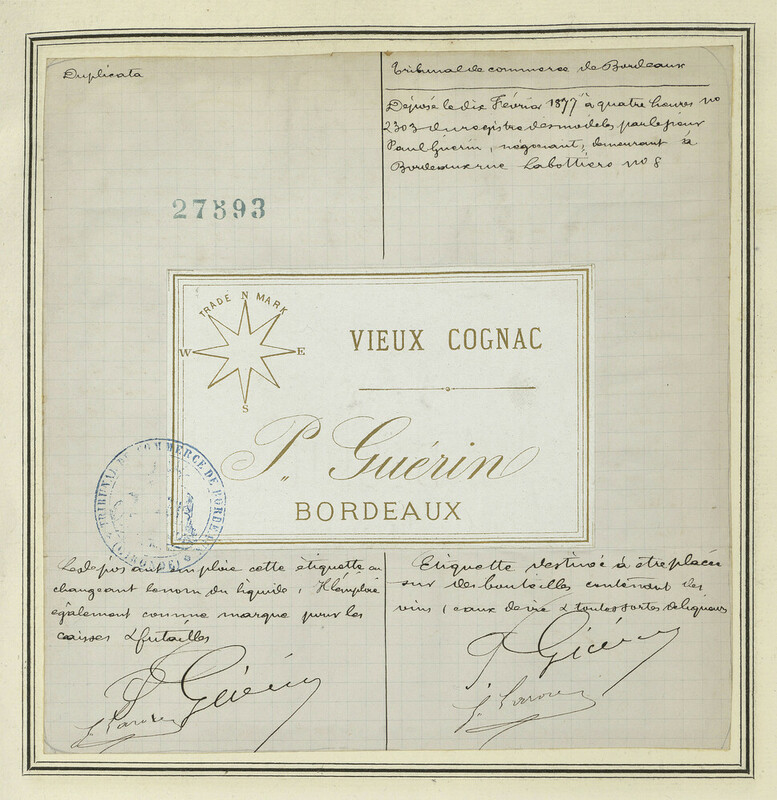 Duplicata
Tribunal de commerce de Bordeaux
Déposé le dix Février 1877 à quatre heures no
2303 du registre des modèles par le sieur
Paul Guérin, négociant, demeurant à
Bordeaux rue Labottière no 8
27593
TRADE MARK
N
W E
S
VIEUX COGNAC
P. Guérin
BORDEAUX
TRIBUNAL DE COMMERCE DE BORDEAUX
(GIRONDE)
Le deposant emploie cette étiquette en
changeant le nom du liquide, Il l'emploie
également comme marque pour les
caisses & futailles
P Guérin
Etiquette destinée à être placée
sur des bouteilles contenant des
vins, eaux de vie & toutes sortes de liqueurs
P Guérin